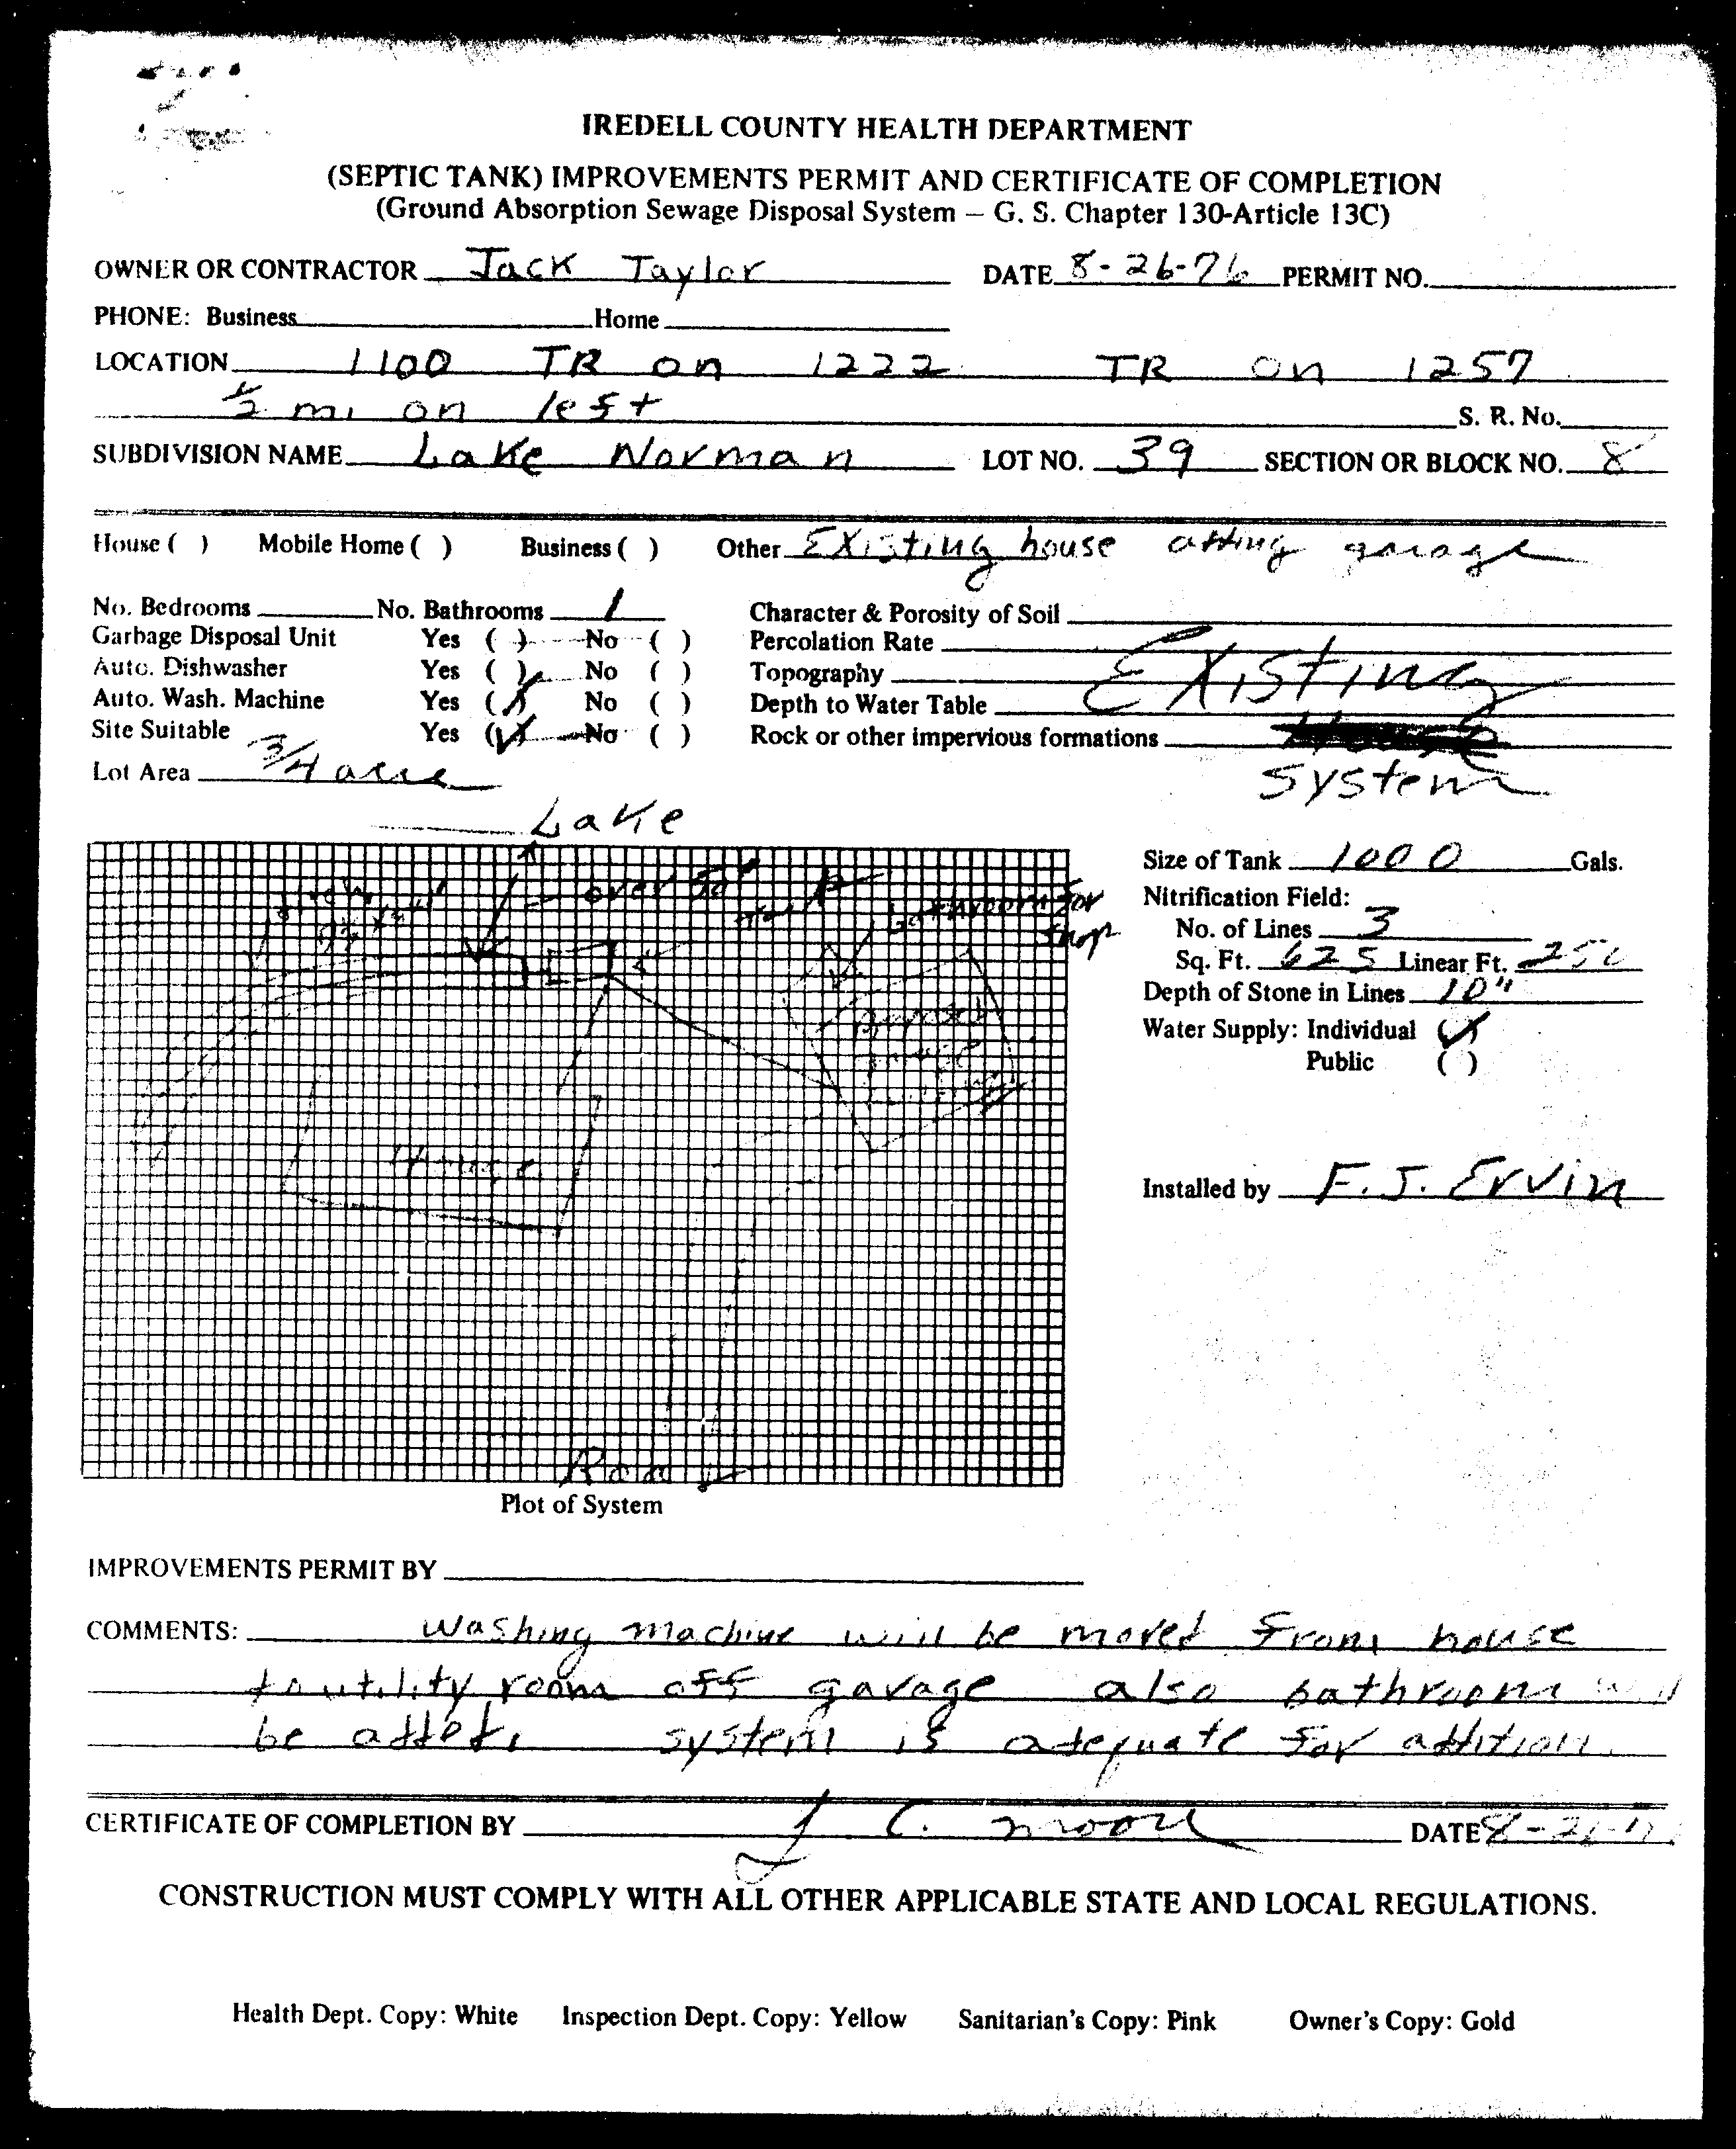 IREDELL COUNTY HEALTH DEPARTMENT
(SEPTIC TANK) IMPROVEMENTS PERMIT AND CERTIFICATE OF COMPLETION
(Ground Absorption Sewage Disposal System — G. S. Chapter 130-Article 13C)
OWNER OR CONTRACTOR Jack Taylor DATE 8-26-76 PERMIT NO.
PHONE: Business Home
LOCATION 1100 TR on 1222 TR on 1257
½ mi on left S. R. No.
SUBDIVISION NAME Lake Norman LOT NO. 39 SECTION OR BLOCK NO. 8
House ( ) Mobile Home ( ) Business ( ) Other Existing house adding garage
No. Bedrooms No. Bathrooms 1 Character & Porosity of Soil
Garbage Disposal Unit Yes ( ) No ( ) Percolation Rate
Auto. Dishwasher Yes ( ) No ( ) Topography Existing
Auto. Wash. Machine Yes (X) No ( ) Depth to Water Table
Site Suitable Yes (X) No ( ) Rock or other impervious formations
Lot Area 3/4 acre System
Lake
over 50'
bathroom for
shop
House
Road
Plot of System
Size of Tank 1000 Gals.
Nitrification Field:
No. of Lines 3
Sq. Ft. 625 Linear Ft. 250
Depth of Stone in Lines 10"
Water Supply: Individual (X)
Public ( )
Installed by F. J. Ervin
IMPROVEMENTS PERMIT BY
COMMENTS: Washing machine will be moved from house
to utility room off garage also bathroom will
be added. system is adequate for addition.
CERTIFICATE OF COMPLETION BY J C. Moore DATE 8-26-
CONSTRUCTION MUST COMPLY WITH ALL OTHER APPLICABLE STATE AND LOCAL REGULATIONS.
Health Dept. Copy: White Inspection Dept. Copy: Yellow Sanitarian's Copy: Pink Owner's Copy: Gold